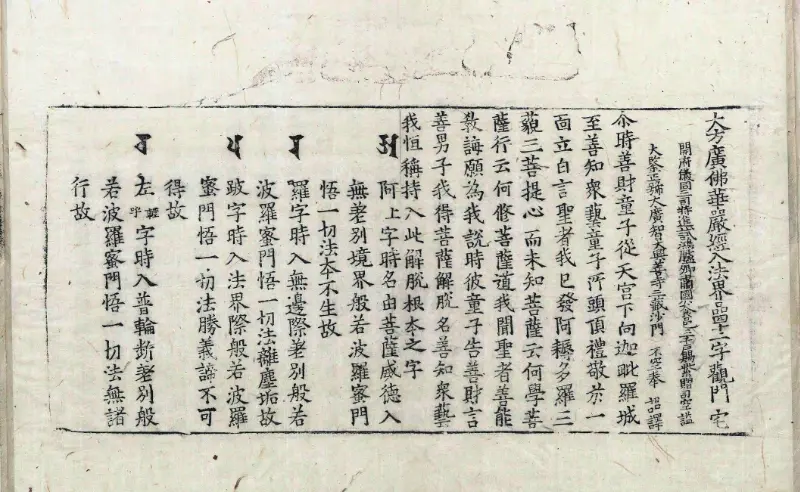 大方廣佛華嚴經入法界品四十二字觀門 宅
開府儀同三司特進試鴻臚卿肅國公食邑三千戶賜紫贈司空謚
大鑒正號大廣智大興善寺三藏沙門 不空奉 詔譯
尒時善財童子從天宮下向迦毗羅城
至善知衆藝童子所頭頂禮敬於一
面立白言聖者我已發阿耨多羅三
藐三菩提心而未知菩薩云何學菩
薩行云何修菩薩道我聞聖者善能
教誨願為我說時彼童子告善財言
善男子我得菩薩解脫名善知衆藝
我恒稱持入此解脫根本之字
𑖀 阿上字時名由菩薩威德入
無差別境界般若波羅蜜門
悟一切法本不生故
𑖨 羅字時入無邊際差別般若
波羅蜜門悟一切法離塵垢故
𑖢 跛字時入法界際般若波羅
蜜門悟一切法勝義諦不可
得故
𑖓 左輕字字時入普輪斷差別般
若波羅蜜門悟一切法無諸
行故